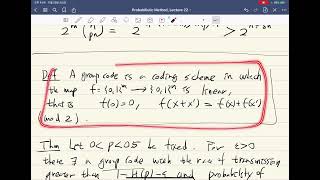 Probabilistic Method, Lecture 22
Def A group code is a coding scheme in which
the map f: {0,1}^m → {0,1}^n is linear,
that is f(0)=0, f(x+x') = f(x)+f(x')
(mod 2).
Thm Let 0<p<0.5 be fixed. For ε>0
there ∃ a group code with the rate of transmission
greater than 1-H(p)-ε and probability of